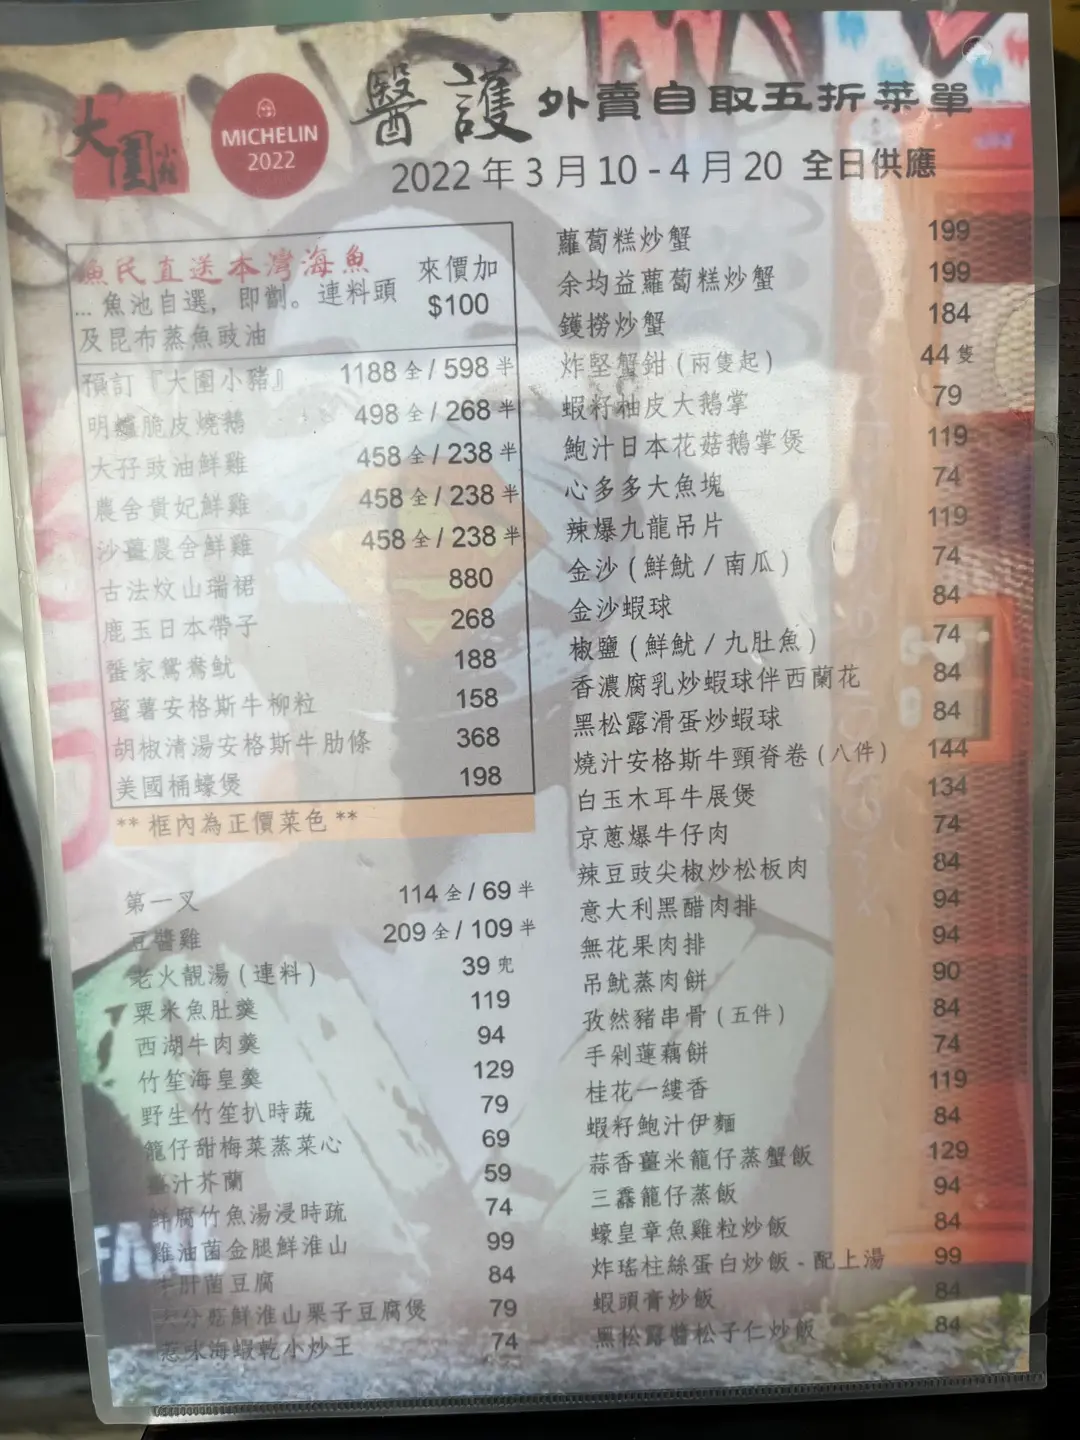 大圍小館
MICHELIN
2022
醫護外賣自取五折菜單
2022年3月10-4月20 全日供應
漁民直送本灣海魚 來價加
... 魚池自選，即劏。連料頭 $100
及昆布蒸魚豉油
預訂『大圍小豬』 1188全/598半
明爐脆皮燒鵝 498全/268半
大孖豉油鮮雞 458全/238半
農舍貴妃鮮雞 458全/238半
沙薑農舍鮮雞 458全/238半
古法炆山瑞裙 880
鹿玉日本帶子 268
蜑家鴛鴦魷 188
蜜薯安格斯牛柳粒 158
胡椒清湯安格斯牛肋條 368
美國桶蠔煲 198
** 框內為正價菜色 **
第一叉 114全/69半
豆醬雞 209全/109半
老火靚湯(連料) 39兜
粟米魚肚羹 119
西湖牛肉羹 94
竹笙海皇羹 129
野生竹笙扒時蔬 79
籠仔甜梅菜蒸菜心 69
薑汁芥蘭 59
鮮腐竹魚湯浸時疏 74
雞油菌金腿鮮淮山 99
牛肝菌豆腐 84
鮮淮山栗子豆腐煲 79
惹味海蝦乾小炒王 74
蘿蔔糕炒蟹 199
余均益蘿蔔糕炒蟹 199
鑊撈炒蟹 184
炸堅蟹鉗(兩隻起) 44隻
蝦籽柚皮大鵝掌 79
鮑汁日本花菇鵝掌煲 119
心多多大魚塊 74
辣爆九龍吊片 119
金沙(鮮魷/南瓜) 74
金沙蝦球 84
椒鹽(鮮魷/九肚魚) 74
香濃腐乳炒蝦球伴西蘭花 84
黑松露滑蛋炒蝦球 84
燒汁安格斯牛頸脊卷(八件) 144
白玉木耳牛展煲 134
京蔥爆牛仔肉 74
辣豆豉尖椒炒松板肉 84
意大利黑醋肉排 94
無花果肉排 94
吊魷蒸肉餅 90
孜然豬串骨(五件) 84
手剁蓮藕餅 74
桂花一縷香 119
蝦籽鮑汁伊麵 84
蒜香薑米籠仔蒸蟹飯 129
三蠚籠仔蒸飯 94
蠔皇章魚雞粒炒飯 84
炸瑤柱絲蛋白炒飯-配上湯 99
蝦頭膏炒飯 84
黑松露醬松子仁炒飯 84